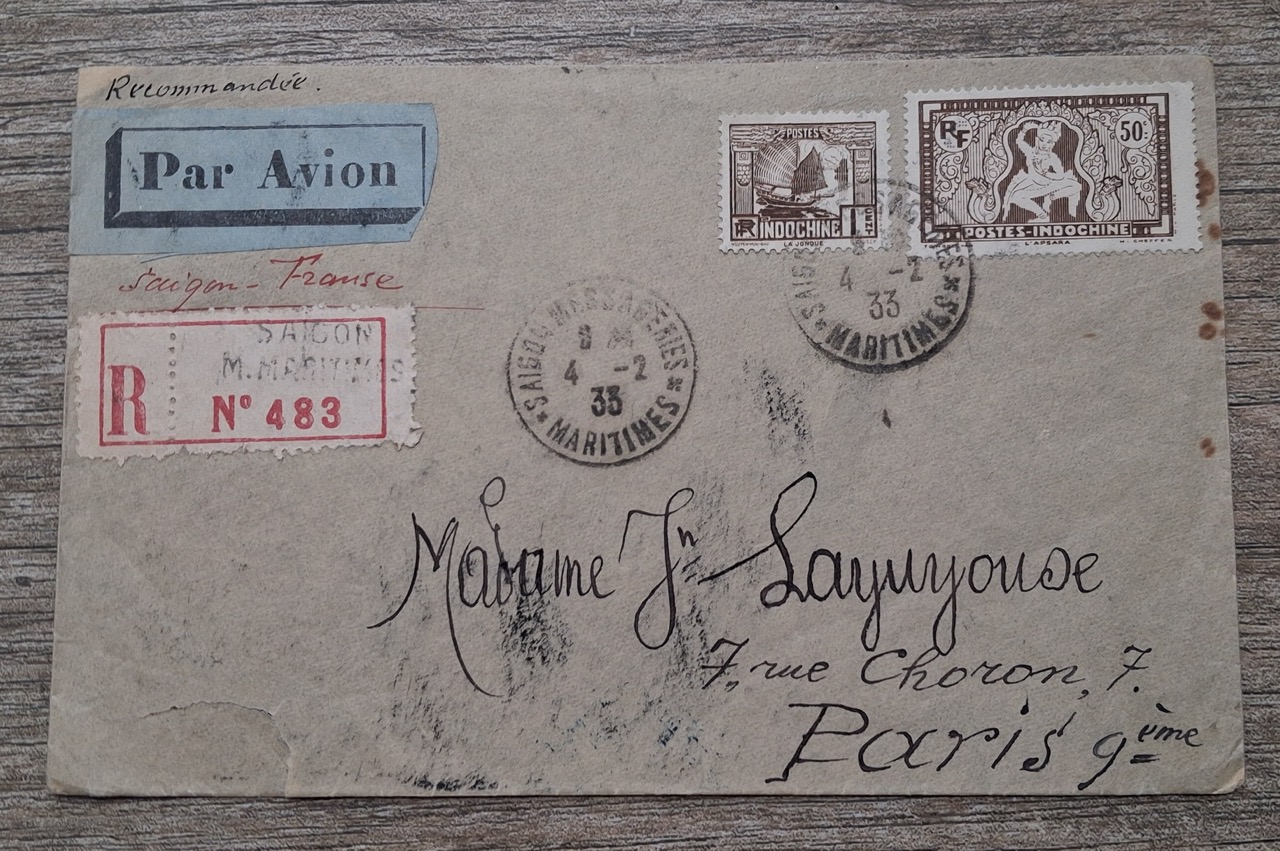 Recommandée.
Par Avion
Saigon - Franse
R
SAIGON
M. MARITIMES
Nº 483
POSTES
RF INDOCHINE 1 CENT
LA JONQUE
RF
50c
POSTES-INDOCHINE
L'APSARA
SAIGON MESSAGERIES
4 -2
33
* MARITIMES *
SAIGON MESSAGERIES
4 -2
33
* MARITIMES *
Madame Jn Layuyouse
7, rue Choron, 7.
Paris 9ème